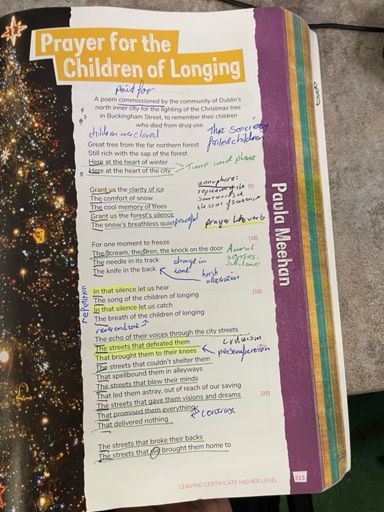 Prayer for the
Children of Longing
paid for
A poem commissioned by the community of Dublin's
north inner city for the lighting of the Christmas tree
in Buckingham Street, to remember their children
who died from drug use.
children were loved
That society
failed children
Great tree from the far northern forest
Still rich with the sap of the forest
Here at the heart of winter
Here at the heart of the city
Time and place
Grant us the clarity of ice
The comfort of snow
[5]
The cool memory of trees
Grant us the forest's silence
The snow's breathless quiet
peaceful
prayer like verb
For one moment to freeze
[10]
The scream, the siren, the knock on the door
The needle in its track
change in
tone
The knife in the back
harsh
alliteration
repetition
In that silence let us hear
The song of the children of longing
[15]
In that silence let us catch
The breath of the children of longing
The echo of their voices through the city streets
The streets that defeated them
That brought them to their knees
personification
The streets that couldn't shelter them
That spellbound them in alleyways
The streets that blew their minds
That led them astray, out of reach of our saving
The streets that gave them visions and dreams
That promised them everything
[25]
That delivered nothing
The streets that broke their backs
The streets that we brought them home to
Paula Meehan
LEAVING CERTIFICATE HIGHER LEVEL
311